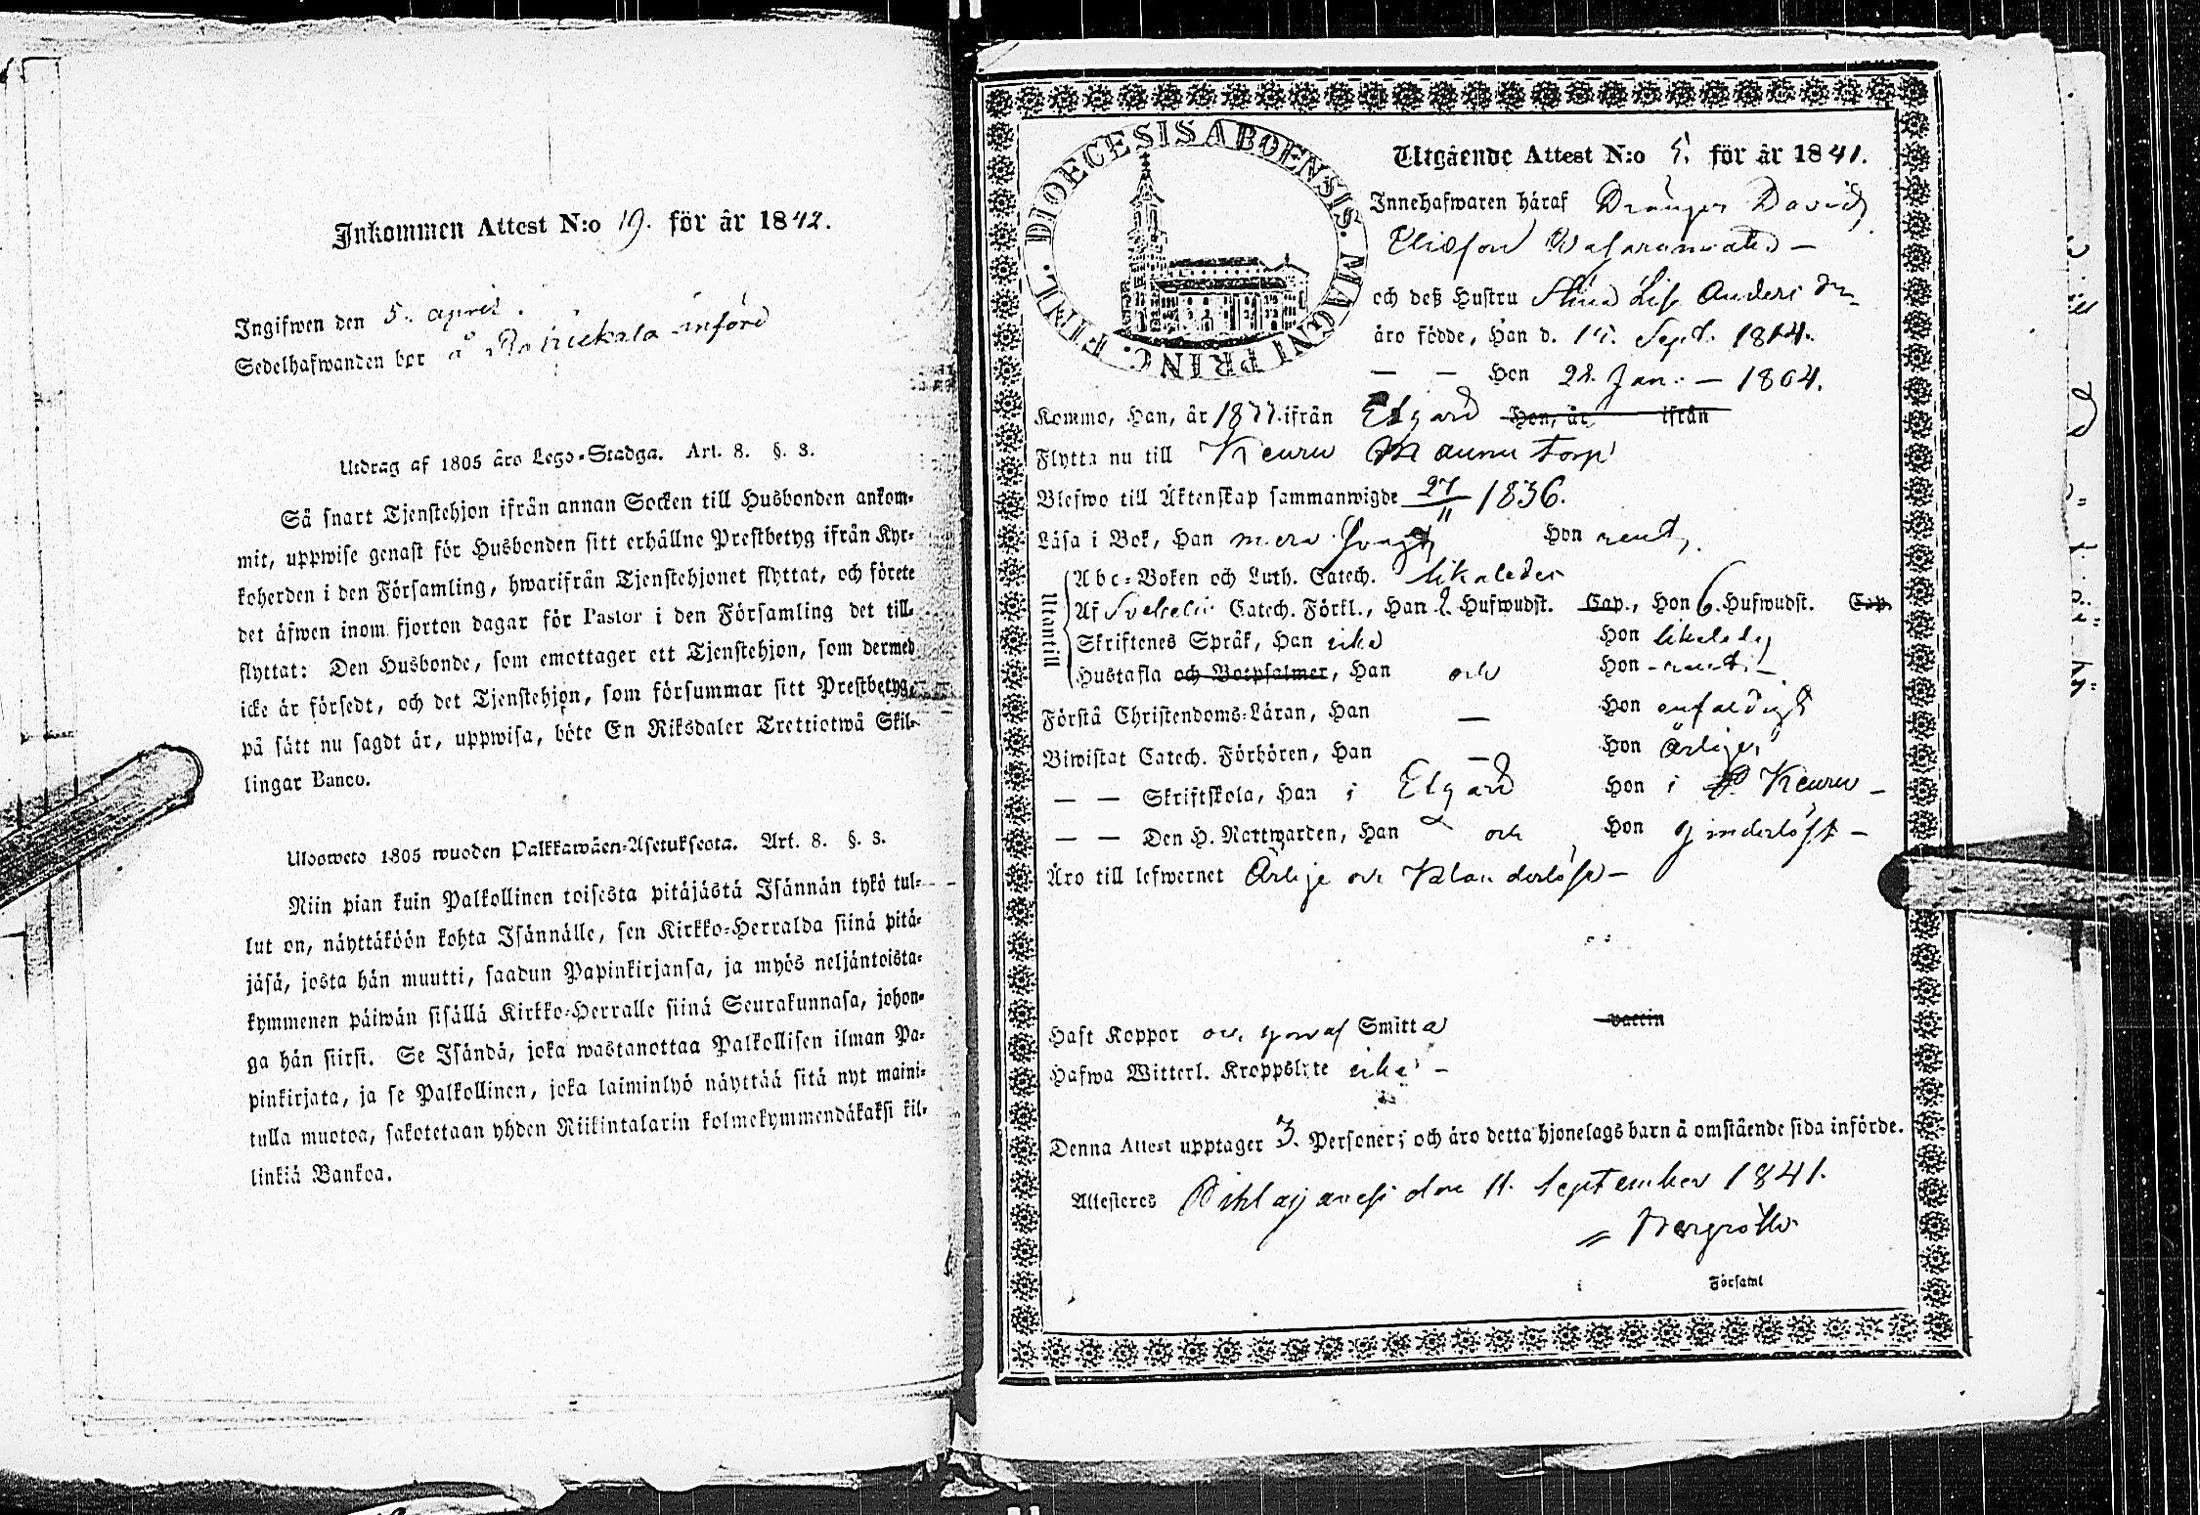 Inkommen Attest N:o 19. för år 1842.
Ingifwen den 5. april.
Sedelhafwanden bor å införd
Utdrag af 1805 års Lego-Stadga. Art. 8. §. 3.
Så snart Tjenstehjon ifrån annan Socken till Husbonden ankom-
mit, uppwise genast för Husbonden sitt erhållne Prestbetyg ifrån Kyr-
koherden i den Församling, hwarifrån Tjenstehjonet flyttat, och förete
det äfwen inom fjorton dagar för Pastor i den Församling det till-
flyttat: Den Husbonde, som emottager ett Tjenstehjon, som dermed
icke är försedt, och det Tjenstehjon, som försummar sitt Prestbetyg,
på sätt nu sagdt är, uppwisa, böte En Riksdaler Trettiotwå Skil-
lingar Banco.
Ulosweto 1805 wuoden Palkkawäen-Asetuksesta. Art. 8. §. 3.
Niin pian kuin Palkollinen toisesta pitäjästä Isännän tykö tul-
lut on, näyttäköön kohta Isännälle, sen Kirkko-Herralda siinä pitä-
jäsä, josta hän muutti, saadun Papinkirjansa, ja myös neljäntoista-
kymmenen päiwän sisällä Kirkko-Herralle siinä Seurakunnasa, johon-
ga hän siirsi. Se Isändä, joka wastanottaa Palkollisen ilman Pa-
pinkirjata, ja se Palkollinen, joka laiminlyö näyttää sitä nyt maini-
tulla muotoa, sakotetaan yhden Riikintalarin kolmekymmendäkaksi kil-
linkiä Bankoa.
DIOECESIS ABOENSIS. MAGNI PRINC. FINL.
Utgående Attest N:o 5. för år 1841.
Innehafwaren häraf Drängen David
Eliasson
och deß Hustru Stina Lisa Anders dr
äro födde, Han d. Sept. 1814.
— — Hon 28. Jan. — 1804.
Kommo, Han, år ifrån Etzärd Hon, år ifrån
Flytta nu till Keuru torp
Blefwo till Äktenskap sammanwigde 27/11 1836.
Läsa i Bok, Han mera svagt Hon rent,
Utantill
Abc-Boken och Luth. Catech. likaledes
Af Svebelii Catech. Förkl., Han 2. Hufwudst. Cap., Hon 6. Hufwudst. Cap.
Skriftenes Språk, Han icke Hon likaledes
Hustafla och Botpsalmer, Han och Hon rent —
Förstå Christendoms-Läran, Han — Hon enfaldigt
Biwistat Catech. Förhören, Han — Hon årligen
— — Skriftskola, Han i Etzärd Hon i Keuru —
— — Den H. Nattwarden, Han och Hon
Äro till lefwernet Ärlige och Klanderlöse —
Haft Koppor och genom Smitta vaccin
Hafwa Witterl. Kroppslyte icke —
Denna Attest upptager 3. Personer; och äro detta hjonelags barn å omstående sida införde.
Attesteras Pihlajavesi den 11. September 1841.
Bergroth
i Församl